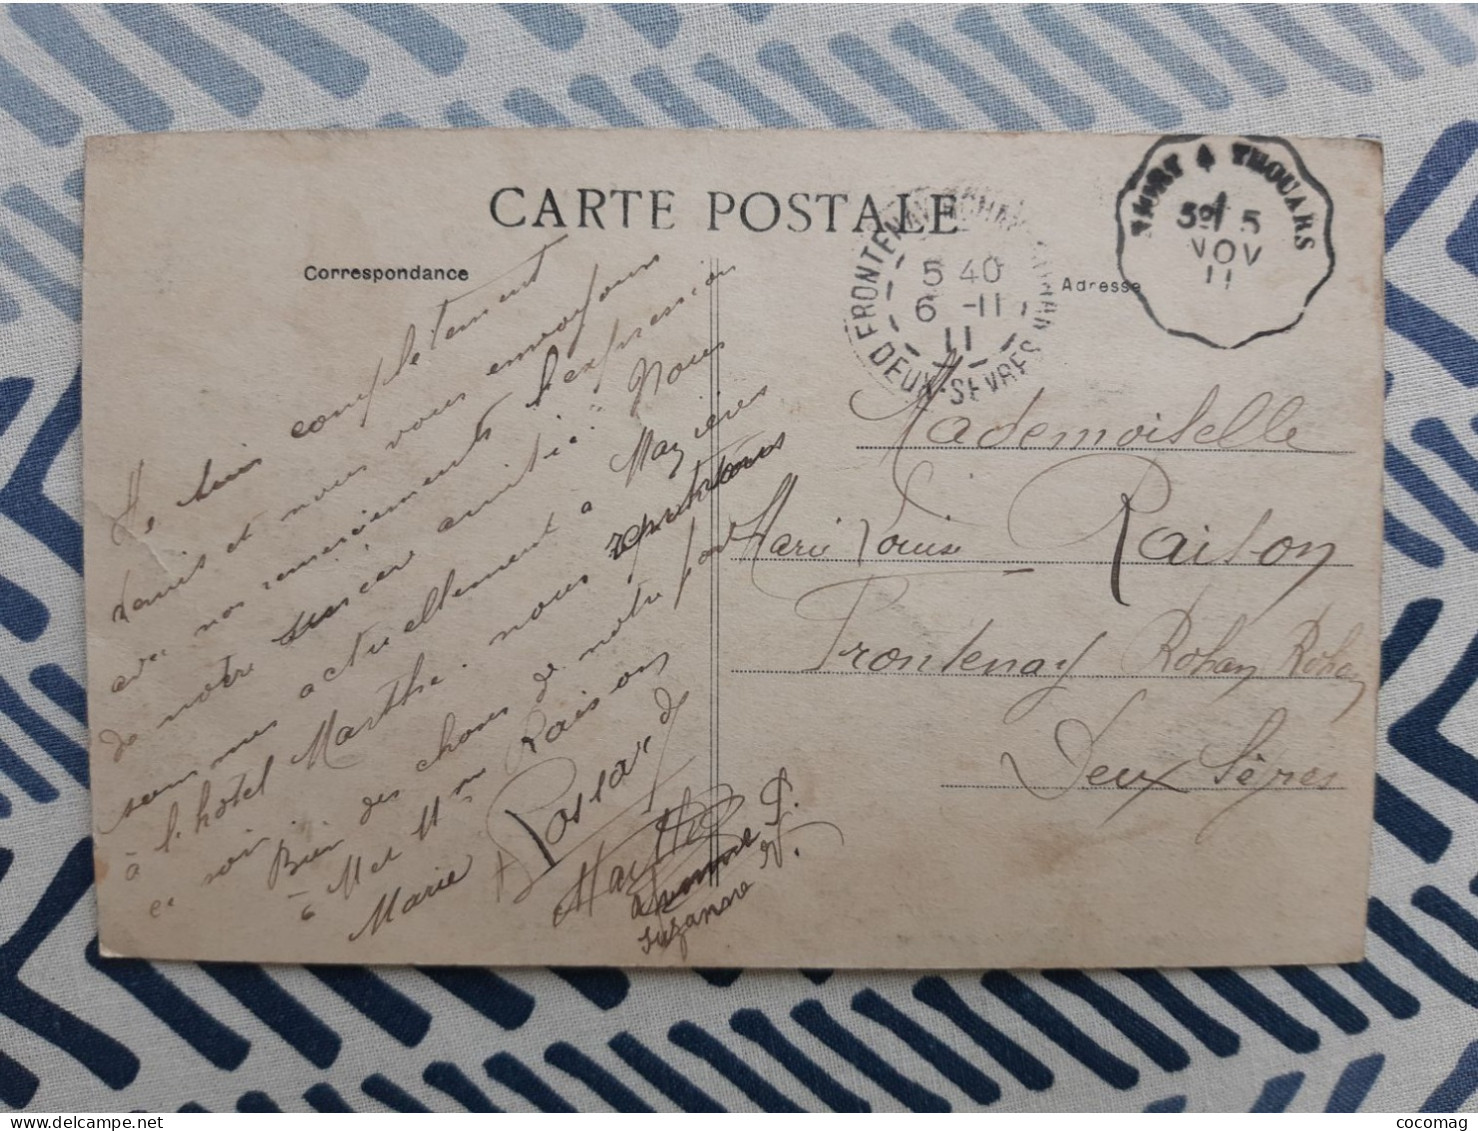 CARTE POSTALE
Correspondance
Adresse
FRONTENAY-ROHAN-ROHAN
5 40
6 -11
11
DEUX-SEVRES
NIORT A THOUARS
5
NOV
11
Je suis complètement
remis et nous vous envoyons
avec nos remerciements l'expression
de notre sincère amitié. Nous
sommes actuellement à Mazières
à l'hôtel Marthe nous repartons
ce soir
Bien des choses de notre part
à M et Mme Raison
Marie Passard
Marthe
Yvonne P.
Suzanne
Mademoiselle
Marie Louise Raison
Frontenay Rohan Rohan
Deux Sèvres
cocomag